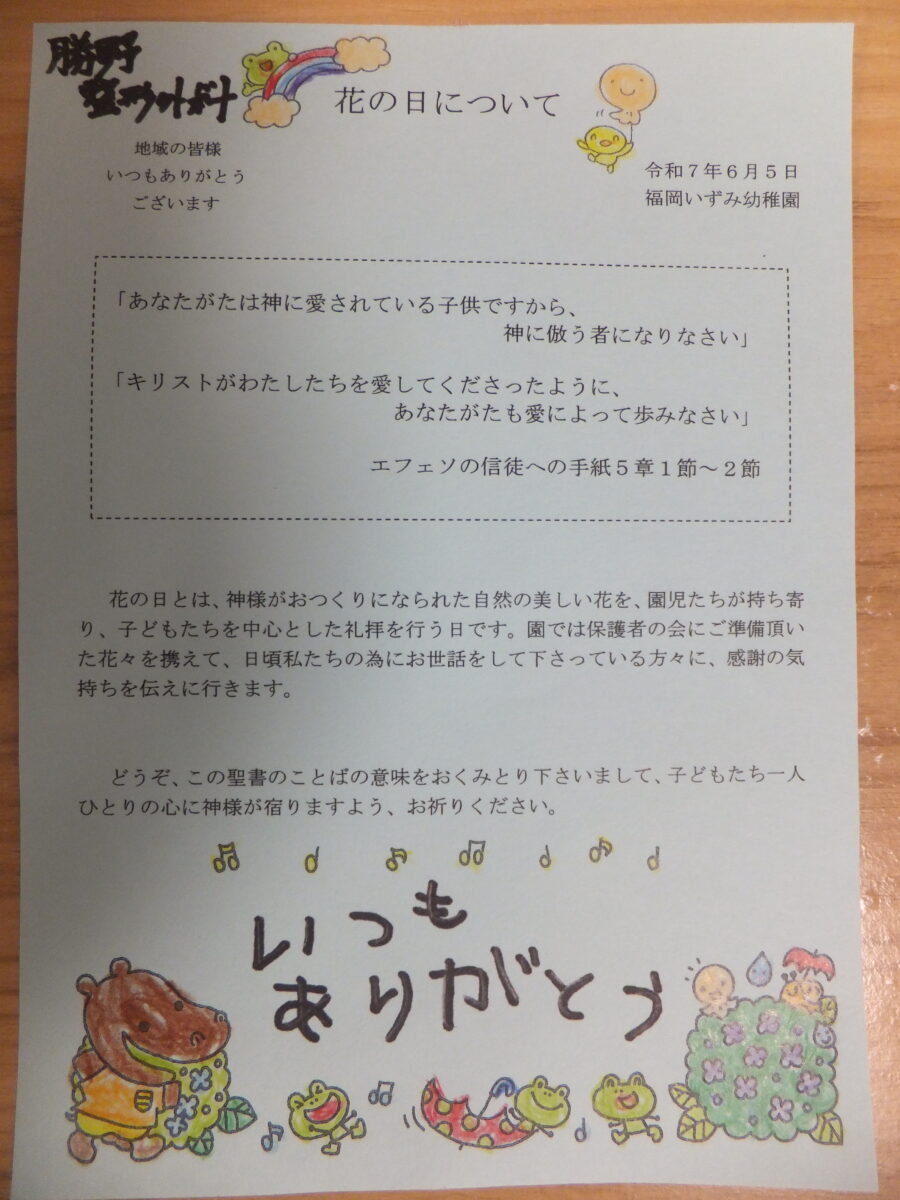 勝野
花の日について
地域の皆様
いつもありがとう
ございます
令和７年６月５日
福岡いずみ幼稚園
「あなたがたは神に愛されている子供ですから、
神に倣う者になりなさい」
「キリストがわたしたちを愛してくださったように、
あなたがたも愛によって歩みなさい」
エフェソの信徒への手紙５章１節～２節
花の日とは、神様がおつくりになられた自然の美しい花を、園児たちが持ち寄
り、子どもたちを中心とした礼拝を行う日です。園では保護者の会にご準備頂い
た花々を携えて、日頃私たちの為にお世話をして下さっている方々に、感謝の気
持ちを伝えに行きます。
どうぞ、この聖書のことばの意味をおくみとり下さいまして、子どもたち一人
ひとりの心に神様が宿りますよう、お祈りください。
いつも
ありがとう